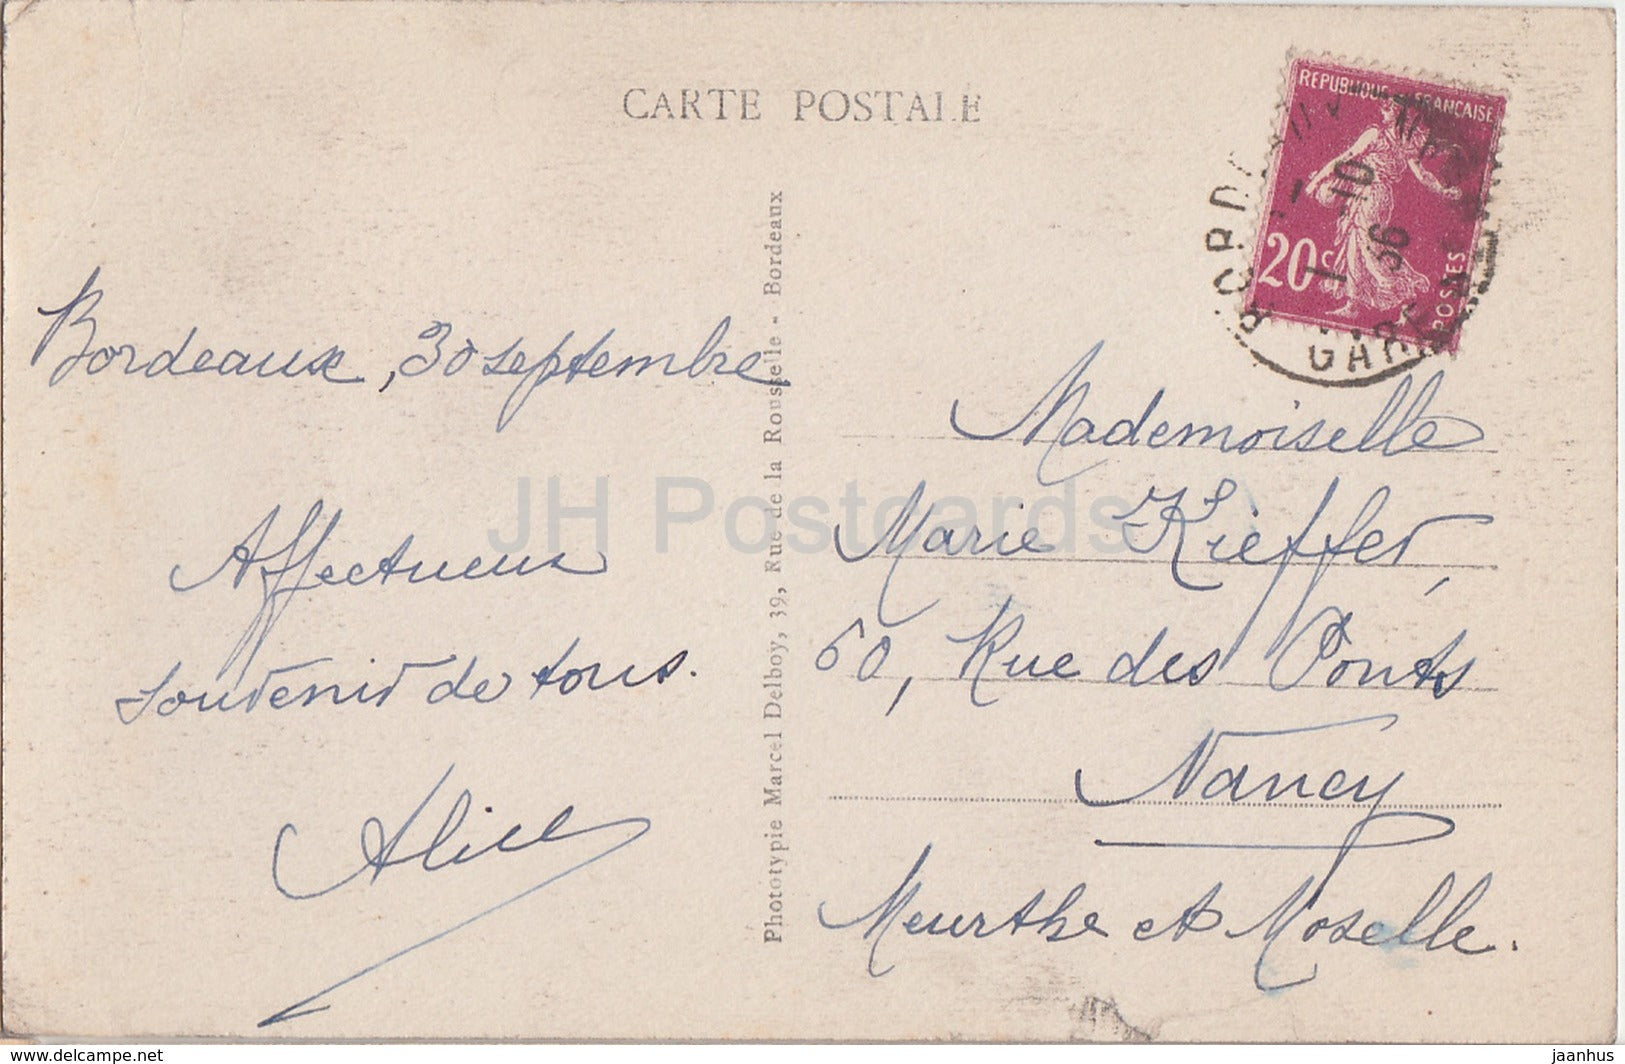 CARTE POSTALE
REPUBLIQUE FRANÇAISE
20c
POSTES
1 -10
36
GARE
Bordeaux, 30 septembre
Affectueux
souvenir de tous.
Alice
Phototypie Marcel Delboy, 39, Rue de la Rousselle - Bordeaux
Mademoiselle
Marie Kieffer,
60, Rue des Ponts
Nancy
Meurthe et Moselle.
JH Postcards
www.delcampe.net
jaanhus